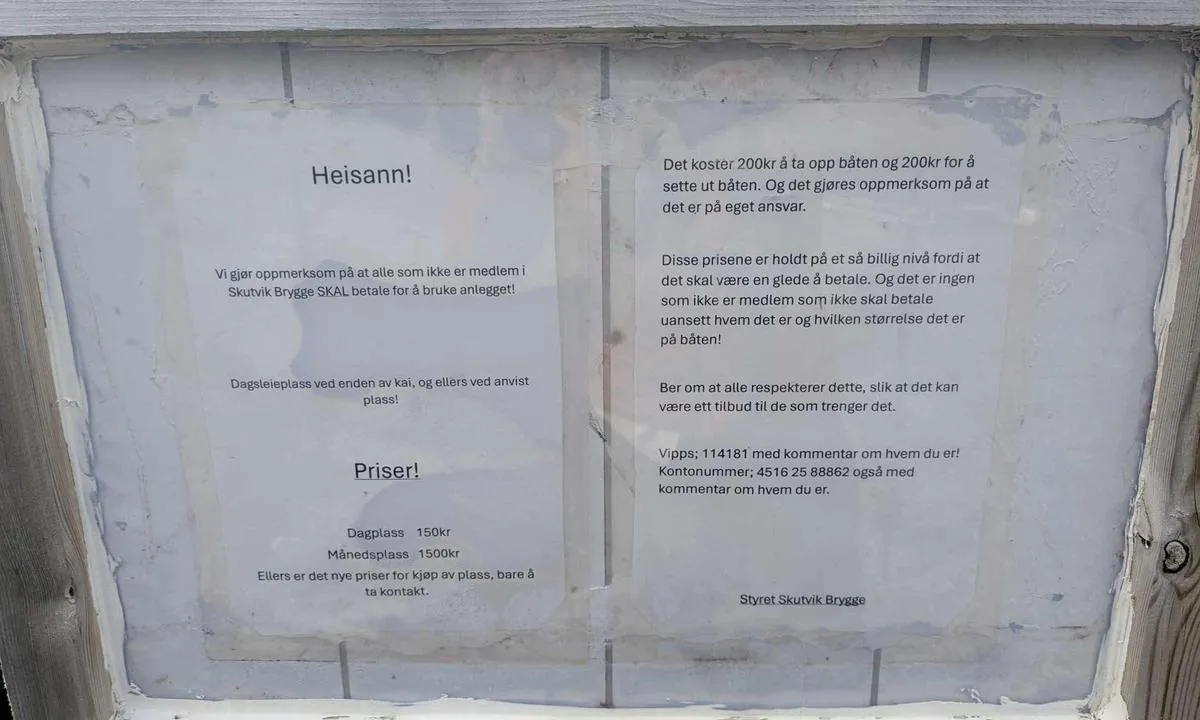 Heisann!
Vi gjør oppmerksom på at alle som ikke er medlem i
Skutvik Brygge SKAL betale for å bruke anlegget!
Dagsleieplass ved enden av kai, og ellers ved anvist
plass!
Priser!
Dagplass 150kr
Månedsplass 1500kr
Ellers er det nye priser for kjøp av plass, bare å
ta kontakt.
Det koster 200kr å ta opp båten og 200kr for å
sette ut båten. Og det gjøres oppmerksom på at
det er på eget ansvar.
Disse prisene er holdt på et så billig nivå fordi at
det skal være en glede å betale. Og det er ingen
som ikke er medlem som ikke skal betale
uansett hvem det er og hvilken størrelse det er
på båten!
Ber om at alle respekterer dette, slik at det kan
være ett tilbud til de som trenger det.
Vipps; 114181 med kommentar om hvem du er!
Kontonummer; 4516 25 88862 også med
kommentar om hvem du er.
Styret Skutvik Brygge